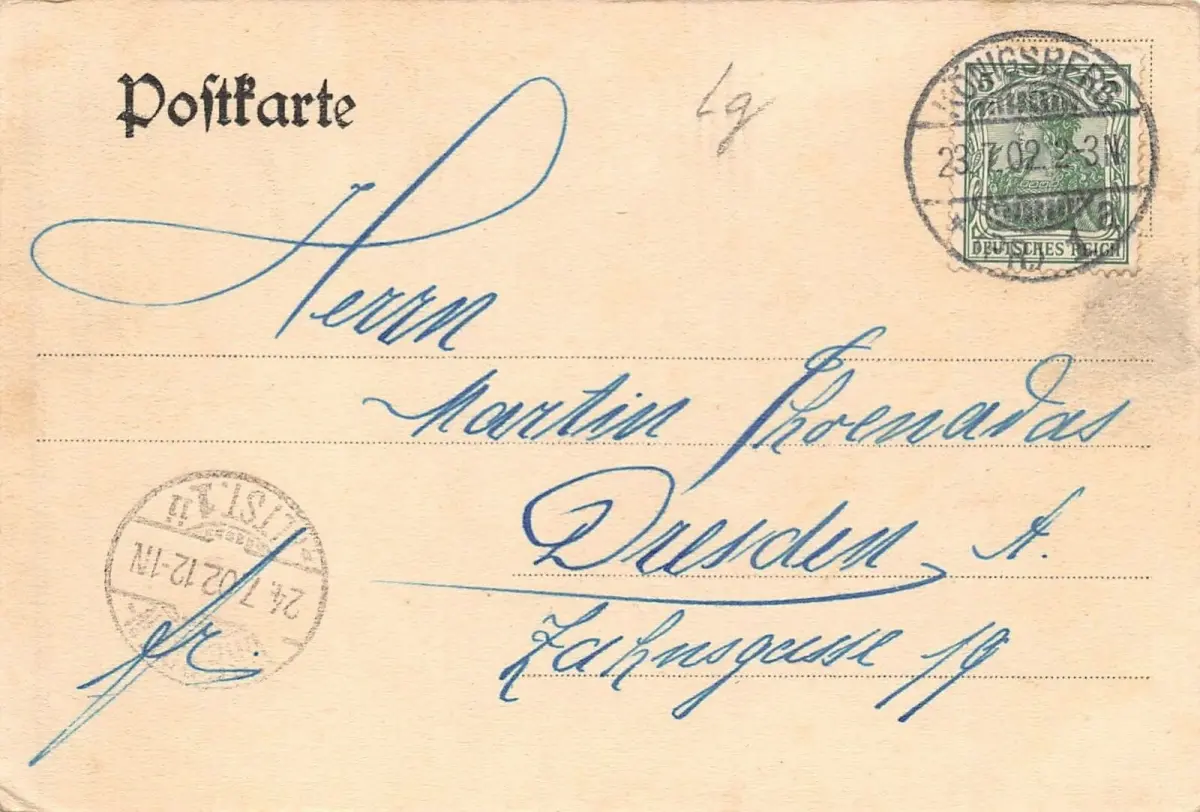 Postkarte
Lg
KÖNIGSBERG
23.7.02. 2-3N.
DEUTSCHES REICH
Herrn
Martin
Dresden A.
Zahnsgasse 19
24.7.02.12-1N
fr.